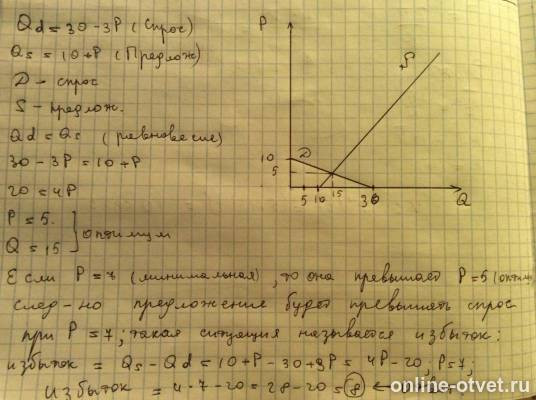 Qd = 30 - 3P (Спрос)
Qs = 10 + P (Предлож)
D - спрос
S - предлож.
Qd = Qs (равновесие)
30 - 3P = 10 + P
20 = 4P
P = 5.
Q = 15
} оптимум
P
S
D
10
5
5 10 15 30
Q
Если P = 7 (минимальная), то она превышает P = 5 (оптим
след-но предложение будет превышать спрос
при P = 7; такая ситуация называется избыток:
избыток = Qs - Qd = 10 + P - 30 + 3P = 4P - 20; P = 7;
избыток = 4 · 7 - 20 = 28 - 20 = 8 ←
online-otvet.ru